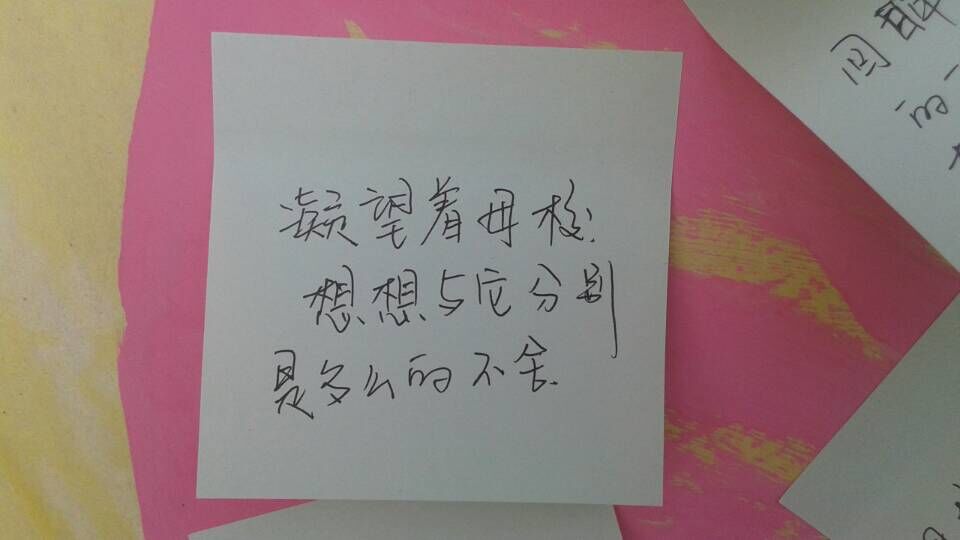 凝望着母校.
想想与它分别
是多么的不舍.
的一